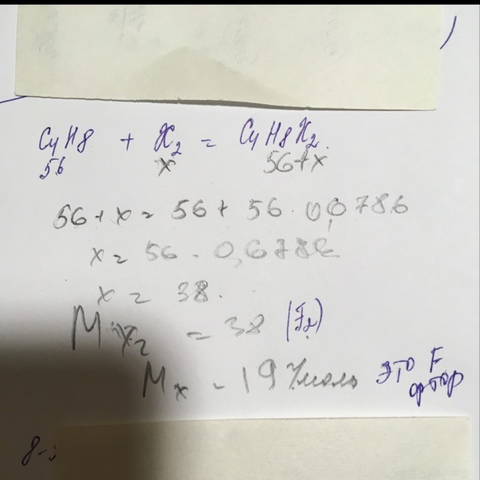 C4H8 + X2 = C4H8X2.
56 x 56+x
56+x = 56+ 56 · 0,6786
x = 56 · 0,6786
x = 38.
M X2 = 38 (F2)
Mx - 19 г/моль это F
фтор
8-